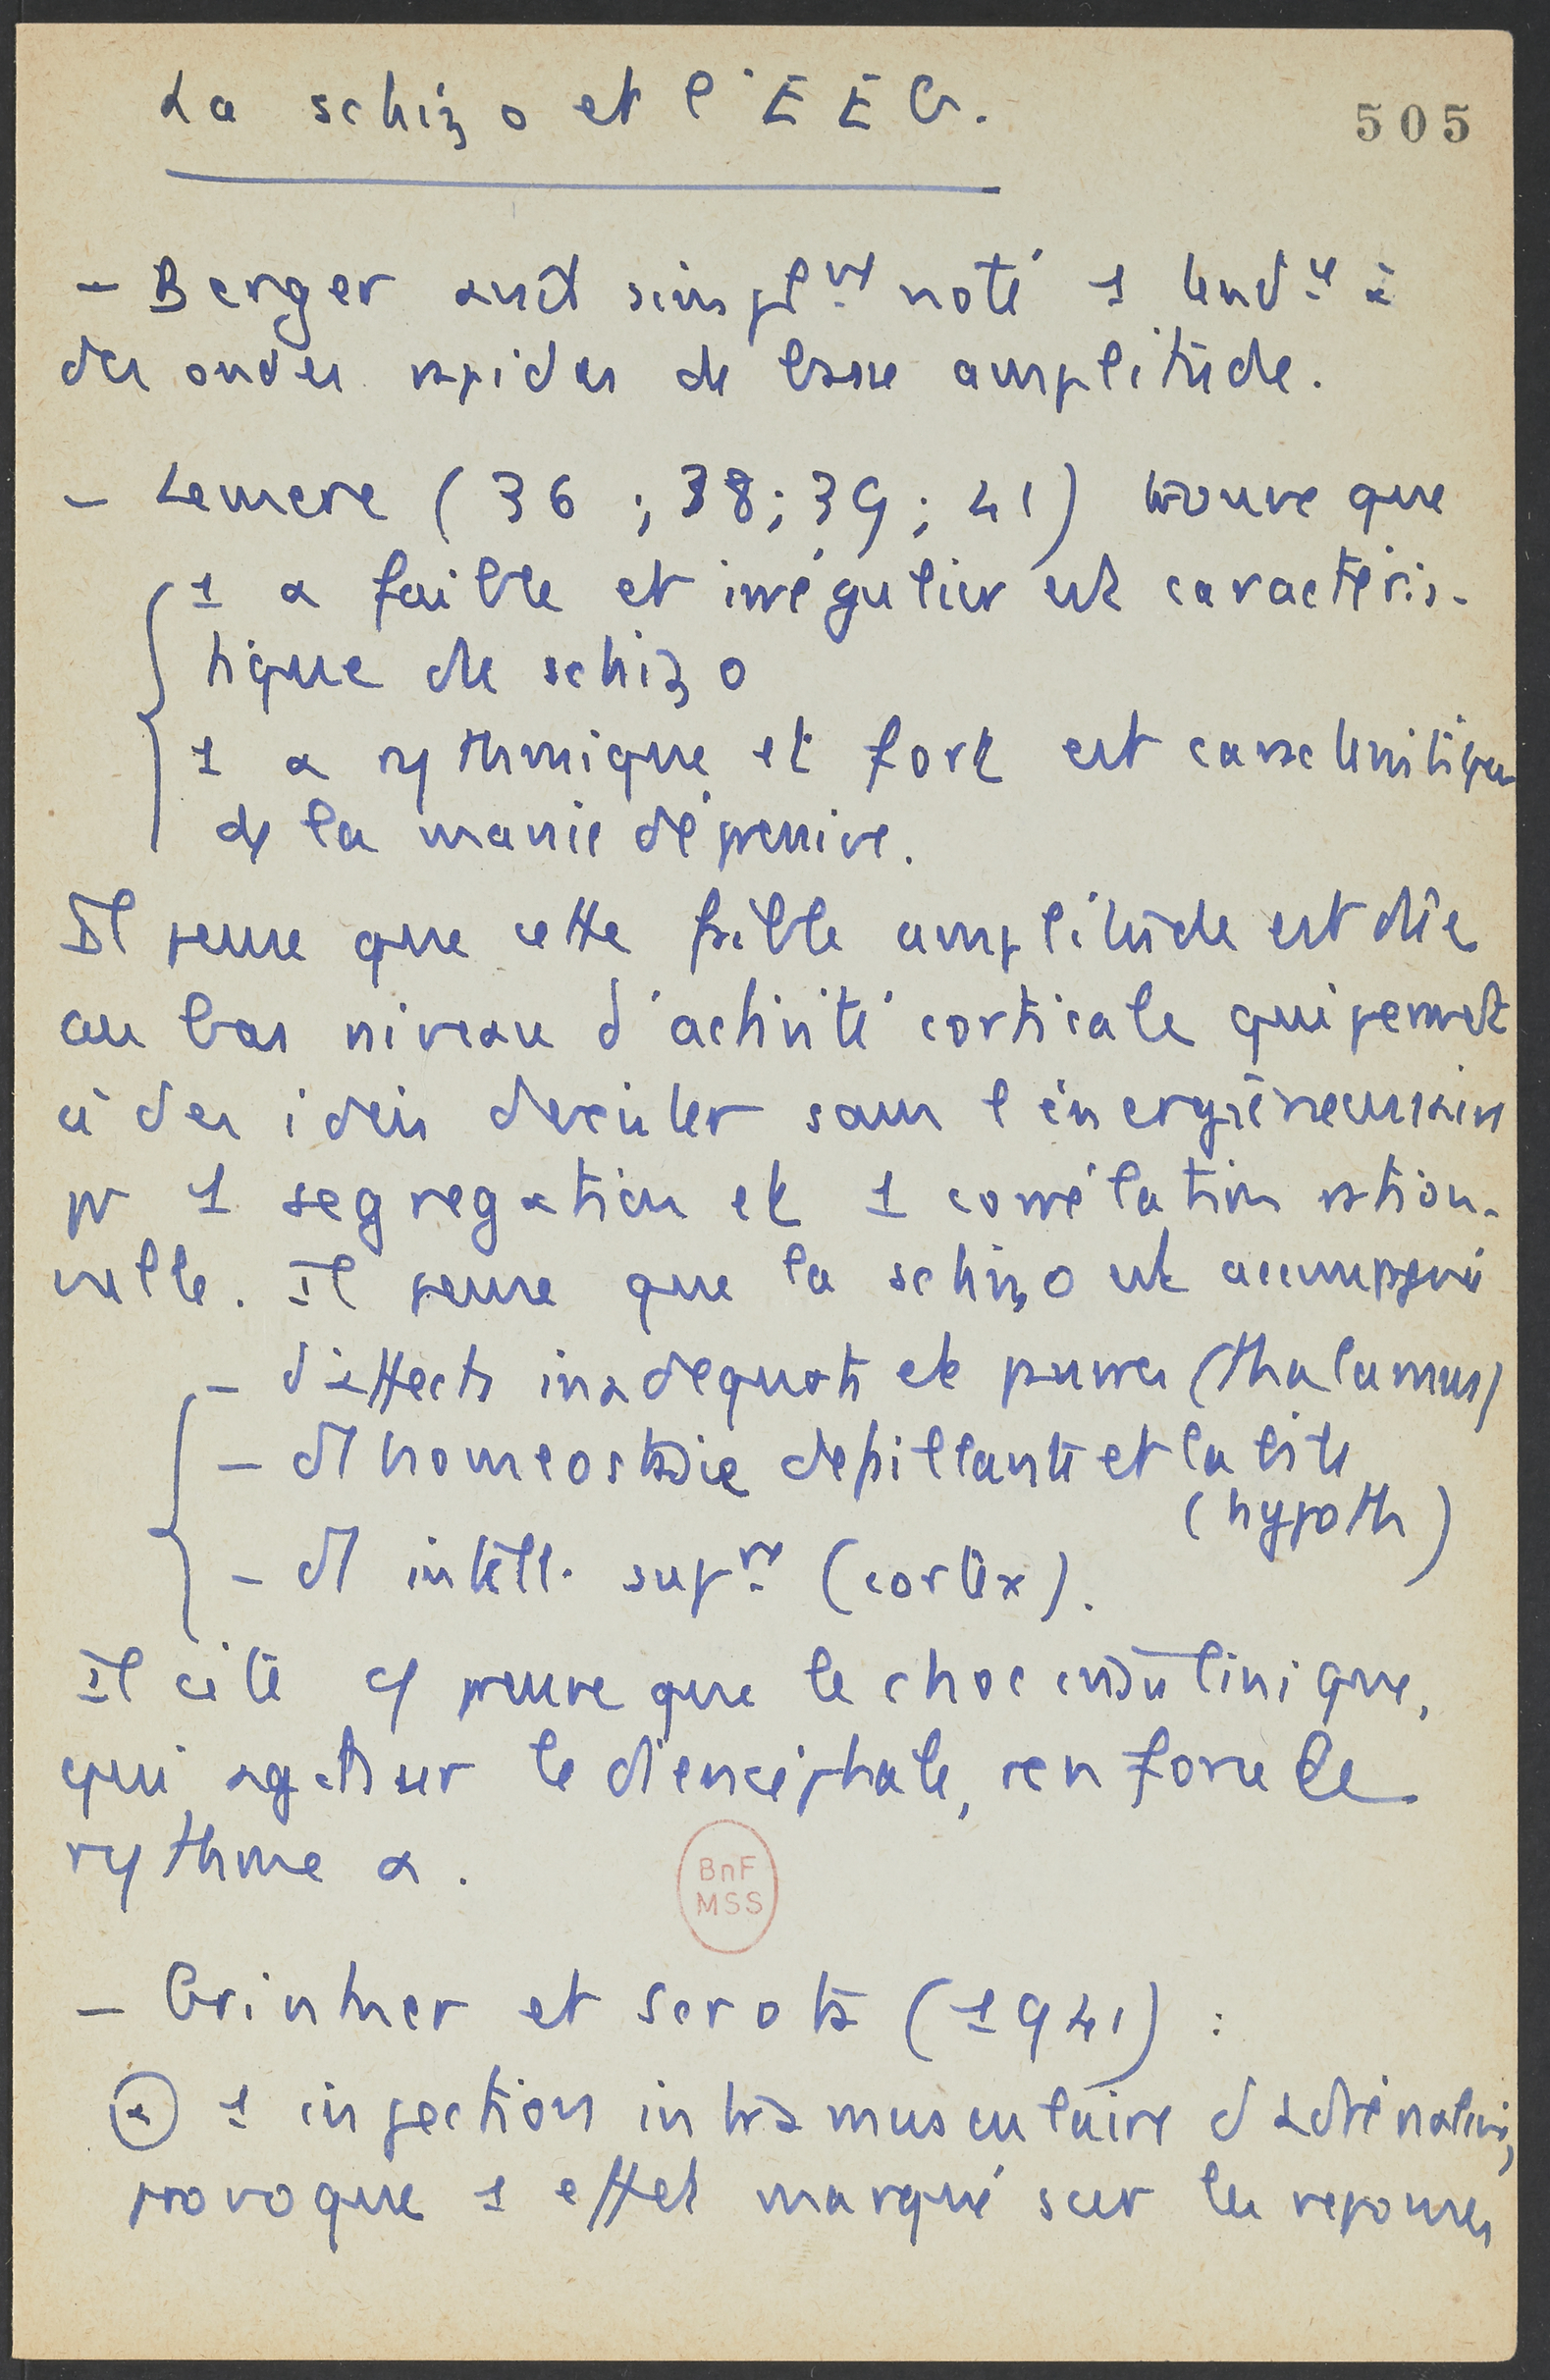 La schizo et l'EEG.
505
- Berger avait simplnt noté 1 tendce à
des ondes rapides de basse amplitude.
- Lemere (36 ; 38 ; 39 ; 41) trouve que
1 α faible et irrégulier est caractéris-
tique de schizo
1 α rythmique et fort est caractéristique
de la manie dépressive.
Il pense que cette faible amplitude est dûe
au bas niveau d'activité corticale qui permet
à des idées d'exister sans l'énergie nécessaire
pr 1 segregation et 1 corrélation ration-
nelle. Il pense que la schizo est accompagné
- d'affects inadequats et pauvres (thalamus)
- d' homeostasie defaillante et labile
(hypoth)
- d' intell. supre (cortex).
Il cite c/ preuve que le choc insulinique,
qui agit sur le diencéphale, renforce le
rythme α.
BnF
MSS
- Grinker et Serota (1941) :
1 injection intramusculaire d'adrénaline,
provoque 1 effet marqué sur les reponses